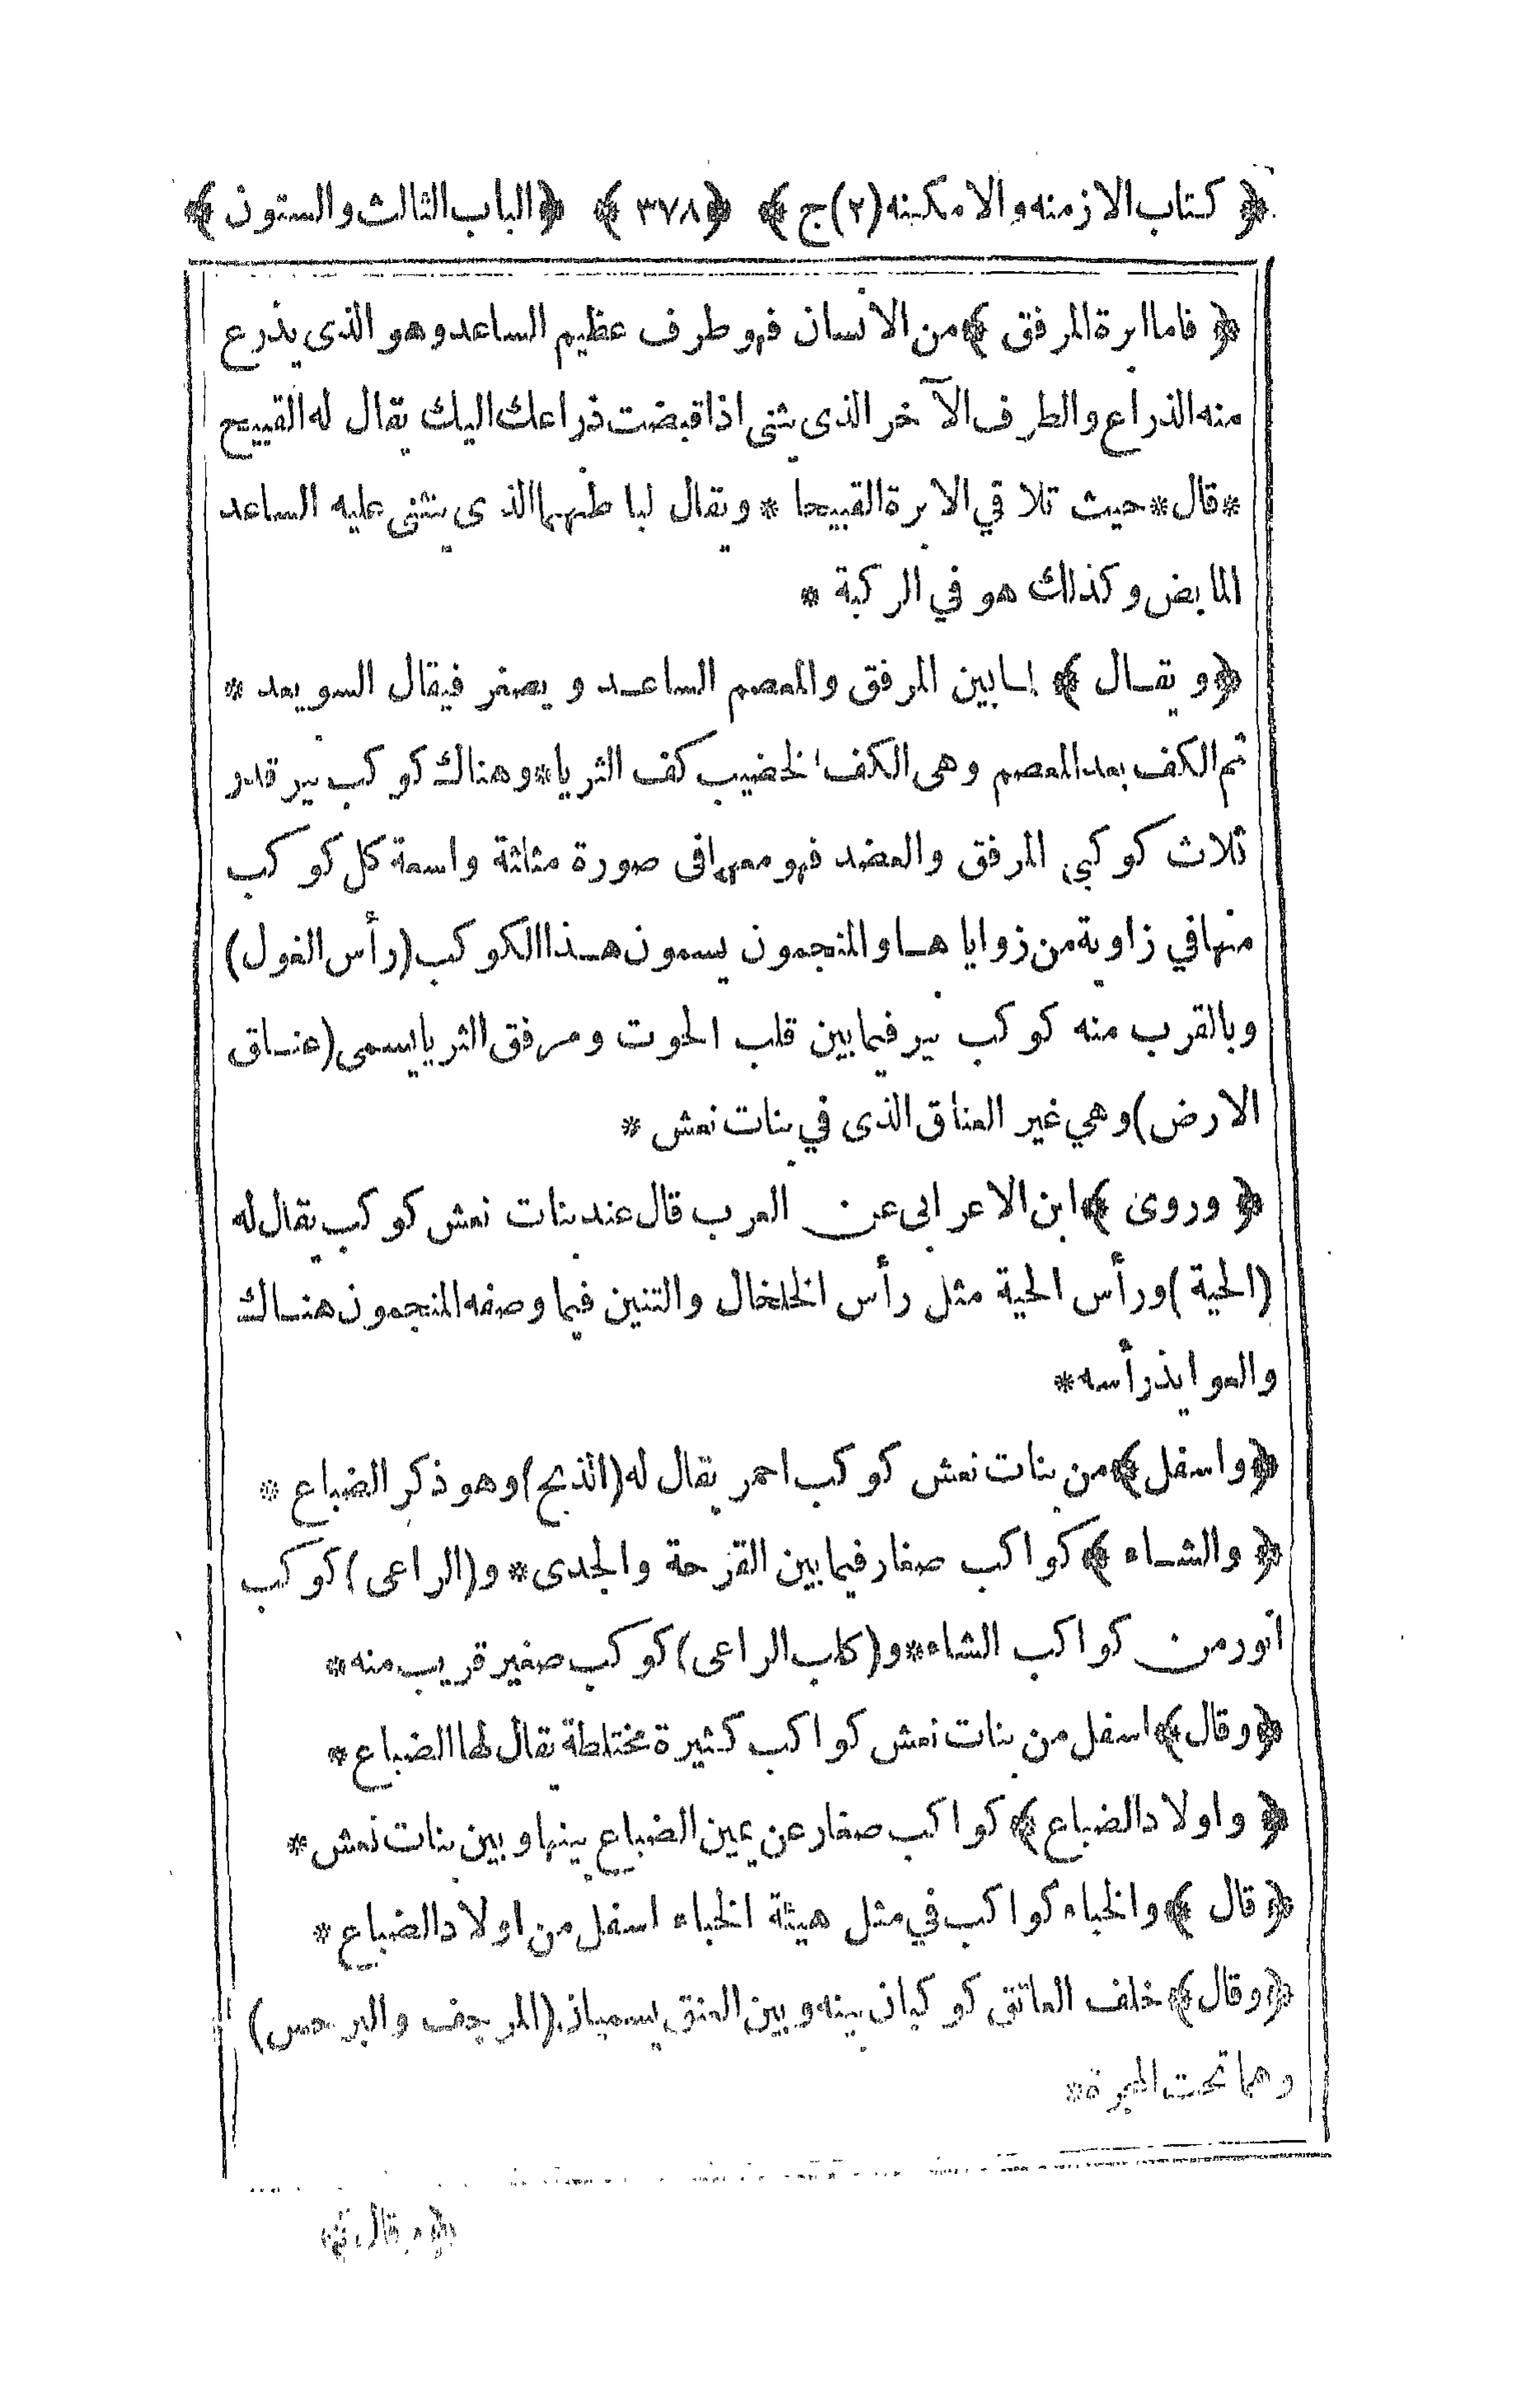 ﴿ كتاب الازمنه والامكنه (٢) ج ﴾ ﴿ ٣٧٨ ﴾ ﴿ الباب الثالث والستون ﴾
﴿ فاما ابرة المرفق ﴾ من الانسان فهو طرف عظيم الساعد وهو الذى يذرع
منه الذراع والطرف الآخر الذى يثنى اذا قبضت ذراعك اليك يقال له القبيح
* قال * حيث تلاقي الابرة القبيحا * ويقال لباطنهما الذى يثنى عليه الساعد
المابض وكذلك هو في الركبة *
﴿ ويقال ﴾ لما بين المرفق والمعصم الساعد ويصغر فيقال السويعد *
ثم الكف بعد المعصم وهى الكف الخضيب كف الثريا * وهناك كوكب نير قدر
ثلاث كوكبي المرفق والعضد فهو معهما فى صورة مثلثة واسعة كل كوكب
منها في زاوية من زواياها والمنجمون يسمون هذا الكوكب (رأس الغول)
وبالقرب منه كوكب نير فيما بين قلب الحوت ومرفق الثريا يسمى (عناق
الارض) وهي غير العناق الذى في بنات نعش *
﴿ وروى ﴾ ابن الاعرابى عن العرب قال عند بنات نعش كوكب يقال له
(الحية) ورأس الحية مثل رأس الخلخال والتنين فيما وصفه المنجمون هناك
والعوايذ رأسه *
﴿ واسفل ﴾ من بنات نعش كوكب احمر يقال له (الذيخ) وهو ذكر الضباع *
﴿ والشاء ﴾ كواكب صغار فيما بين القرحة والجدى * و(الراعى) كوكب
انور من كواكب الشاء * و(كلب الراعى) كوكب صغير قريب منه *
﴿ وقال ﴾ اسفل من بنات نعش كواكب كثيرة مختلطة يقال لها الضباع *
﴿ واولاد الضباع ﴾ كواكب صغار عن يمين الضباع بينها وبين بنات نعش *
﴿ قال ﴾ والخباء كواكب في مثل هيئة الخباء اسفل من اولاد الضباع *
﴿ وقال ﴾ خلف العاتق كوكبان بينه وبين العنق يسميان (المرجف والبرجس)
وهما تحت المجرة *
﴿ وقال ﴾